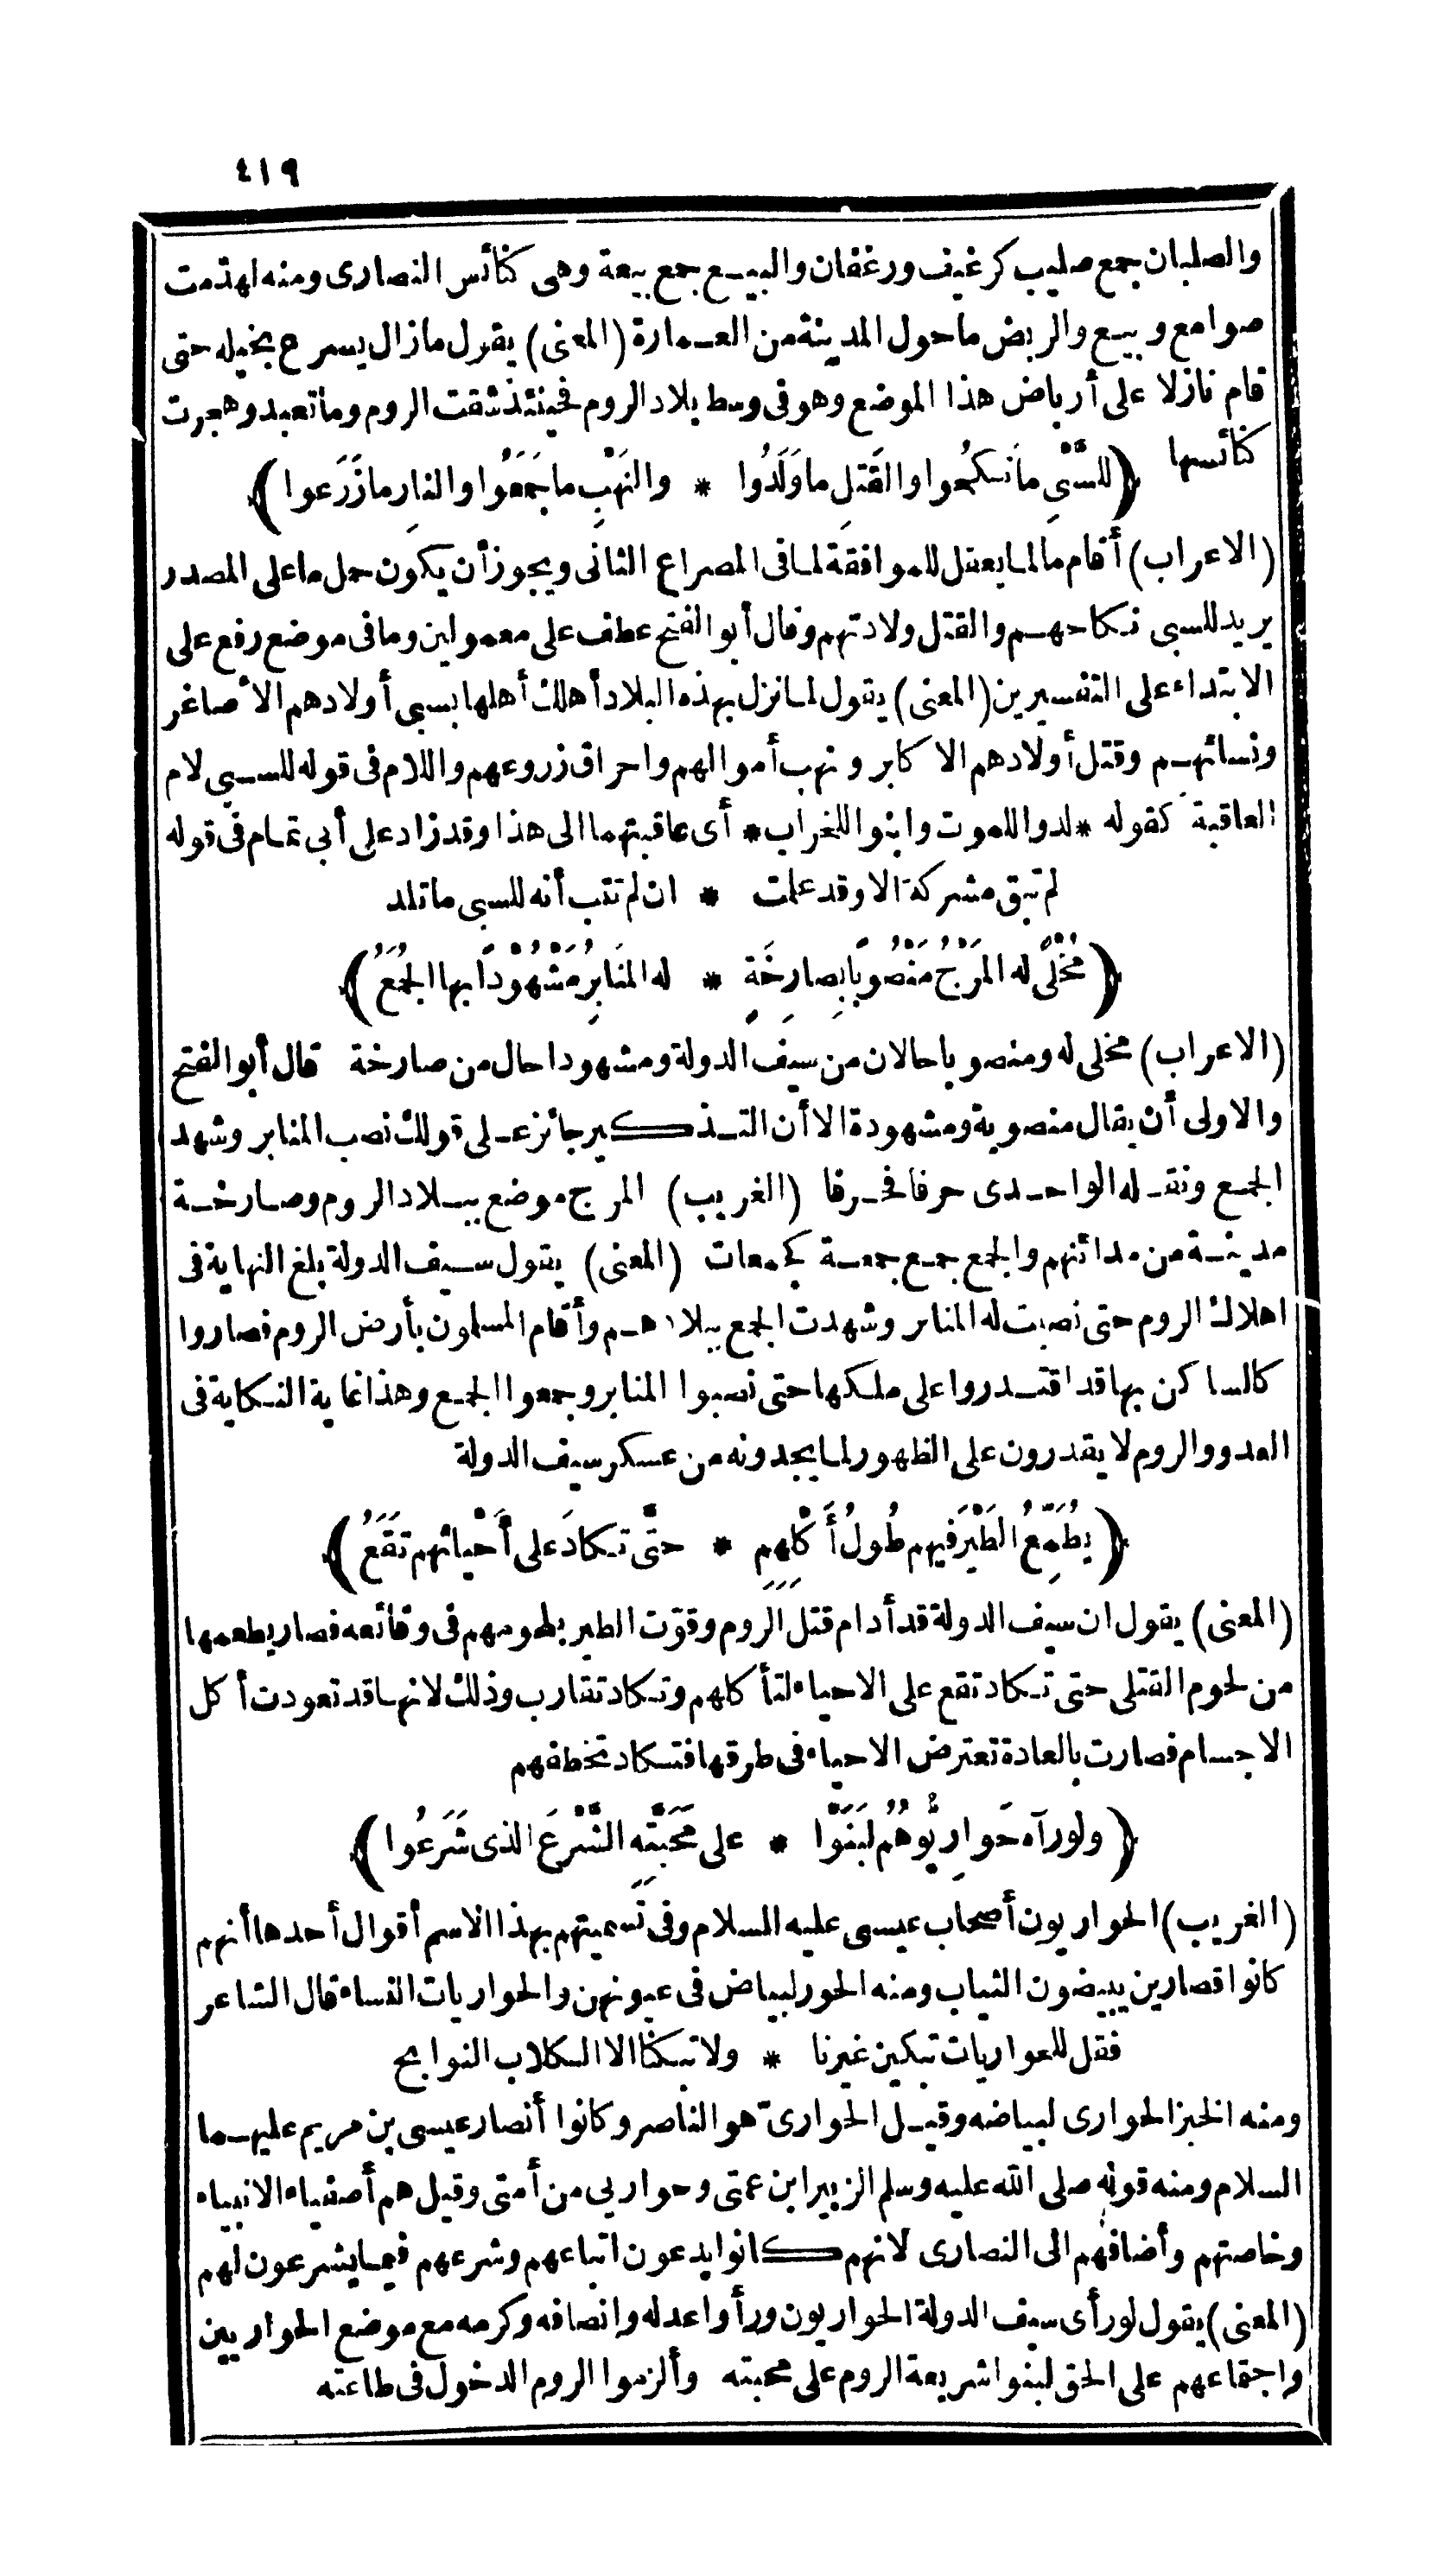 ٤١٩
والصلبان جمع صليب كرغيف ورغفان والبيع جمع بيعة وهى كنائس النصارى ومنه لهدّمت
صوامع وبيع والربض ماحول المدينة من العمارة (المعنى) يقول مازال يسرع بخيله حتى
قام نازلا على أرباض هذا الموضع وهو فى وسط بلاد الروم فحينئذ شقت الروم وما تعبد وهجرت
كنائسها
(للسَّبْىِ ما نَكَحُوا والقَتْلِ ما وَلَدُوا * والنَهْبِ ما جَمَعُوا والنارِ ما زَرَعوا)
(الاعراب) أقام ما لما يعقل للموافقة لما فى المصراع الثانى ويجوز أن يكون حمل ما على المصدر
يريد للسبى نكاحهم والقتل ولادتهم وقال أبو الفتح عطف على معمولين وما فى موضع رفع على
الابتداء على التفسيرين (المعنى) يقول لما نزل بهذه البلاد أهلك أهلها بسبى أولادهم الأصاغر
ونسائهم وقتل أولادهم الاكابر ونهب أموالهم واحراق زروعهم واللام فى قوله للسبى لام
العاقبة كقوله * لدوا للموت وابنوا للخراب * أى عاقبتهما الى هذا وقد زاد على أبى تمام فى قوله
لم تبق مشركة الا وقد علمت * ان لم تتب أنه للسبى ما تلد
(مُخْلًى له المَرْجُ مَنْصُوبًا بِصارِخَةٍ * له المَنابِرُ مَشْهُوْدًا بها الجُمَعُ)
(الاعراب) مخلى له ومنصوبا حالان من سيف الدولة ومشهودا حال من صارخة قال أبو الفتح
والاولى أن يقال منصوبة ومشهودة الا أن التذكير جائز على قولك نصب المنابر وشهد
الجمع ونقله الواحدى حرفا فحرفا (الغريب) المرج موضع ببلاد الروم وصارخة
مدينة من مدائنهم والجمع جمع جمعة كجمعات (المعنى) يقول سيف الدولة بلغ النهاية فى
اهلاك الروم حتى نصبت له المنابر وشهدت الجمع ببلادهم وأقام المسلمون بأرض الروم فصاروا
كالساكن بها قد اقتدروا على ملكها حتى نصبوا المنابر وجمعوا الجمع وهذا غاية النكاية فى
العدو والروم لا يقدرون على الظهور لما يجدونه من عسكر سيف الدولة
(يُطَمِّعُ الطَيْرَ فيهم طُولُ أَكْلِهِمِ * حتَّى تكادَ على أَحْيائهم تَقَعُ)
(المعنى) يقول ان سيف الدولة قد أدام قتل الروم وقوّت الطير بلحومهم فى وقائعه فصار يطعمها
من لحوم القتلى حتى تكاد تقع على الاحياء لتأكلهم وتكاد تقارب وذلك لانها قد تعودت أكل
الاجسام فصارت بالعادة تعترض الاحياء فى طرقها فتكاد تخطفهم
(ولو رآه حَوارِيُّوهُمُ لَبَنَوْا * على مَحَبَّتِهِ الشَّرْعَ الذى شَرَعُوا)
(الغريب) الحواريون أصحاب عيسى عليه السلام وفى تسميتهم بهذا الاسم أقوال أحدها أنهم
كانوا قصارين يبيضون الثياب ومنه الحور لبياض فى عيونهن والحواريات النساء قال الشاعر
فقل للحواريات تبكين غيرنا * ولا تبكنا الا الكلاب النوابح
ومنه الخبز الحوارى لبياضه وقيل الحوارىّ هو الناصر وكانوا أنصار عيسى بن مريم عليهما
السلام ومنه قوله صلى الله عليه وسلم الزبير ابن عمتى وحواريى من أمتى وقيل هم أصفياء الانبياء
وخاصتهم وأضافهم الى النصارى لانهم كانوا يدعون اتباعهم وشرعهم فيما يشرعون لهم
(المعنى) يقول لو رأى سيف الدولة الحواريون ورأوا عدله وانصافه وكرمه مع موضع الحواريين
واجتماعهم على الحق لبنوا شريعة الروم على محبته وألزموا الروم الدخول فى طاعته